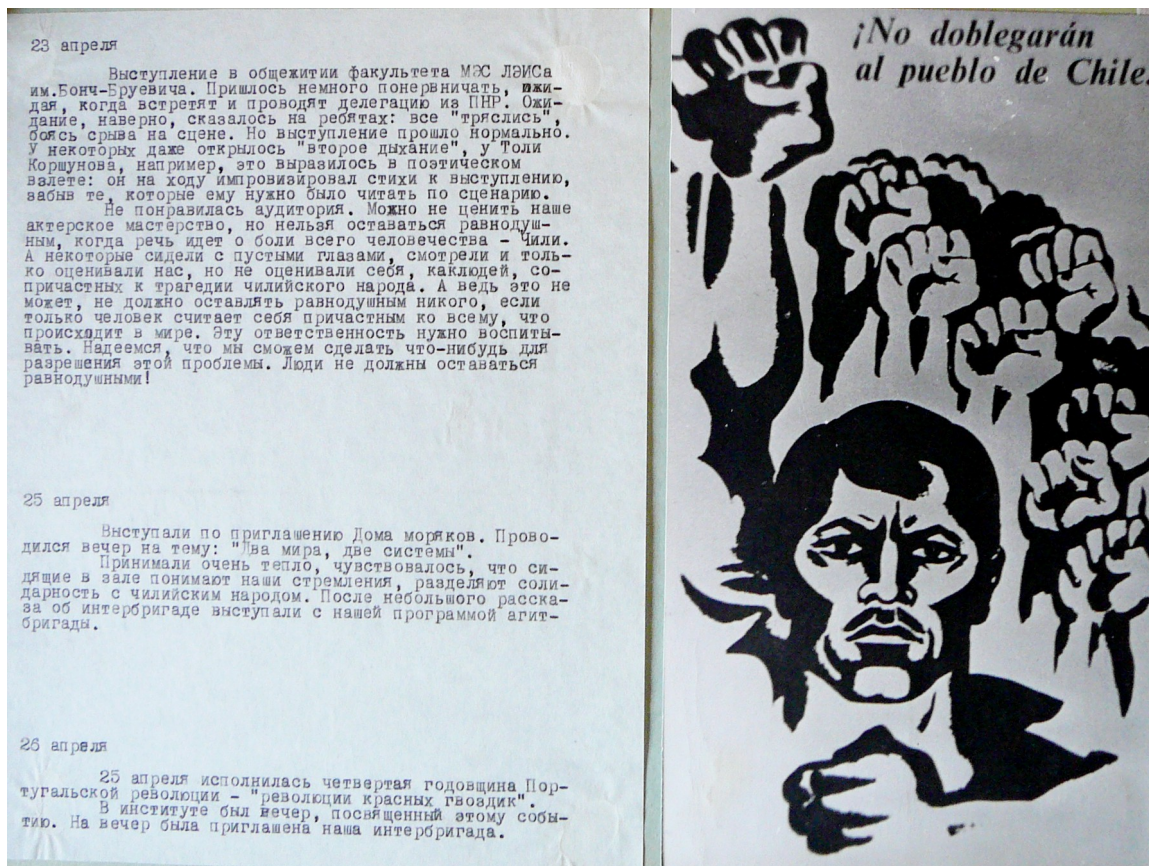 23 апреля
Выступление в общежитии факультета МЭС ЛЭИСа
им.Бонч-Бруевича. Пришлось немного понервничать, ожи-
дая, когда встретят и проводят делегацию из ПНР. Ожи-
дание, наверно, сказалось на ребятах: все "тряслись",
боясь срыва на сцене. Но выступление прошло нормально.
У некоторых даже открылось "второе дыхание", у Толи
Коршунова, например, это выразилось в поэтическом
взлете: он на ходу импровизировал стихи к выступлению,
забыв те, которые ему нужно было читать по сценарию.
Не понравилась аудитория. Можно не ценить наше
актерское мастерство, но нельзя оставаться равнодуш-
ным, когда речь идет о боли всего человечества - Чили.
А некоторые сидели с пустыми глазами, смотрели и толь-
ко оценивали нас, но не оценивали себя, каклюдей, со-
причастных к трагедии чилийского народа. А ведь это не
может, не должно оставлять равнодушным никого, если
только человек считает себя причастным ко всему, что
происходит в мире. Эту ответственность нужно воспиты-
вать. Надеемся, что мы сможем сделать что-нибудь для
разрешения этой проблемы. Люди не должны оставаться
равнодушными!
25 апреля
Выступали по приглашению Дома моряков. Прово-
дился вечер на тему: "Два мира, две системы".
Принимали очень тепло, чувствовалось, что си-
дящие в зале понимают наши стремления, разделяют соли-
дарность с чилийским народом. После небольшого расска-
за об интербригаде выступали с нашей программой агит-
бригады.
26 апреля
25 апреля исполнилась четвертая годовщина Пор-
тугальской революции - "революции красных гвоздик".
В институте был вечер, посвященный этому собы-
тию. На вечер была приглашена наша интербригада.
¡No doblegarán
al pueblo de Chile.